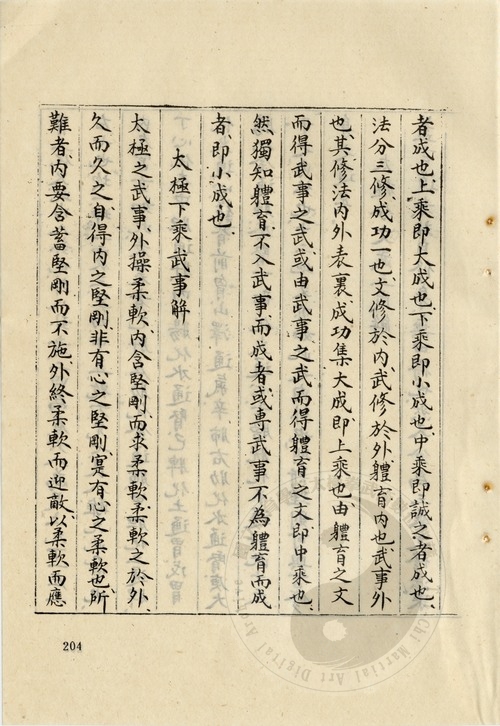 者成也、上乘即大成也、下乘即小成也、中乘即誠之者成也、
法分三修、成功一也、文修於內、武修於外、體育內也、武事外
也、其修法內外表裏、成功集大成、即上乘也、由體育之文
而得武事之武、或由武事之武而得體育之文、即中乘也、
然獨知體育、不入武事、而成者、或專武事、不為體育而成
者、即小成也、
太極下乘武事解
太極之武事、外操柔軟、內含堅剛、而求柔軟、柔軟之於外、
久而久之、自得內之堅剛、非有心之堅剛、寔有心之柔軟也、所
難者、內要含蓄堅剛而不施、外終柔軟而迎敵、以柔軟而應
204
Chi Martial Art Digital Ar